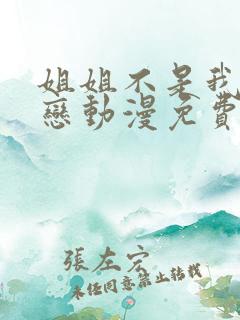 姐姐不是我
戀動漫免費
張左宏
未經同意禁止轉載